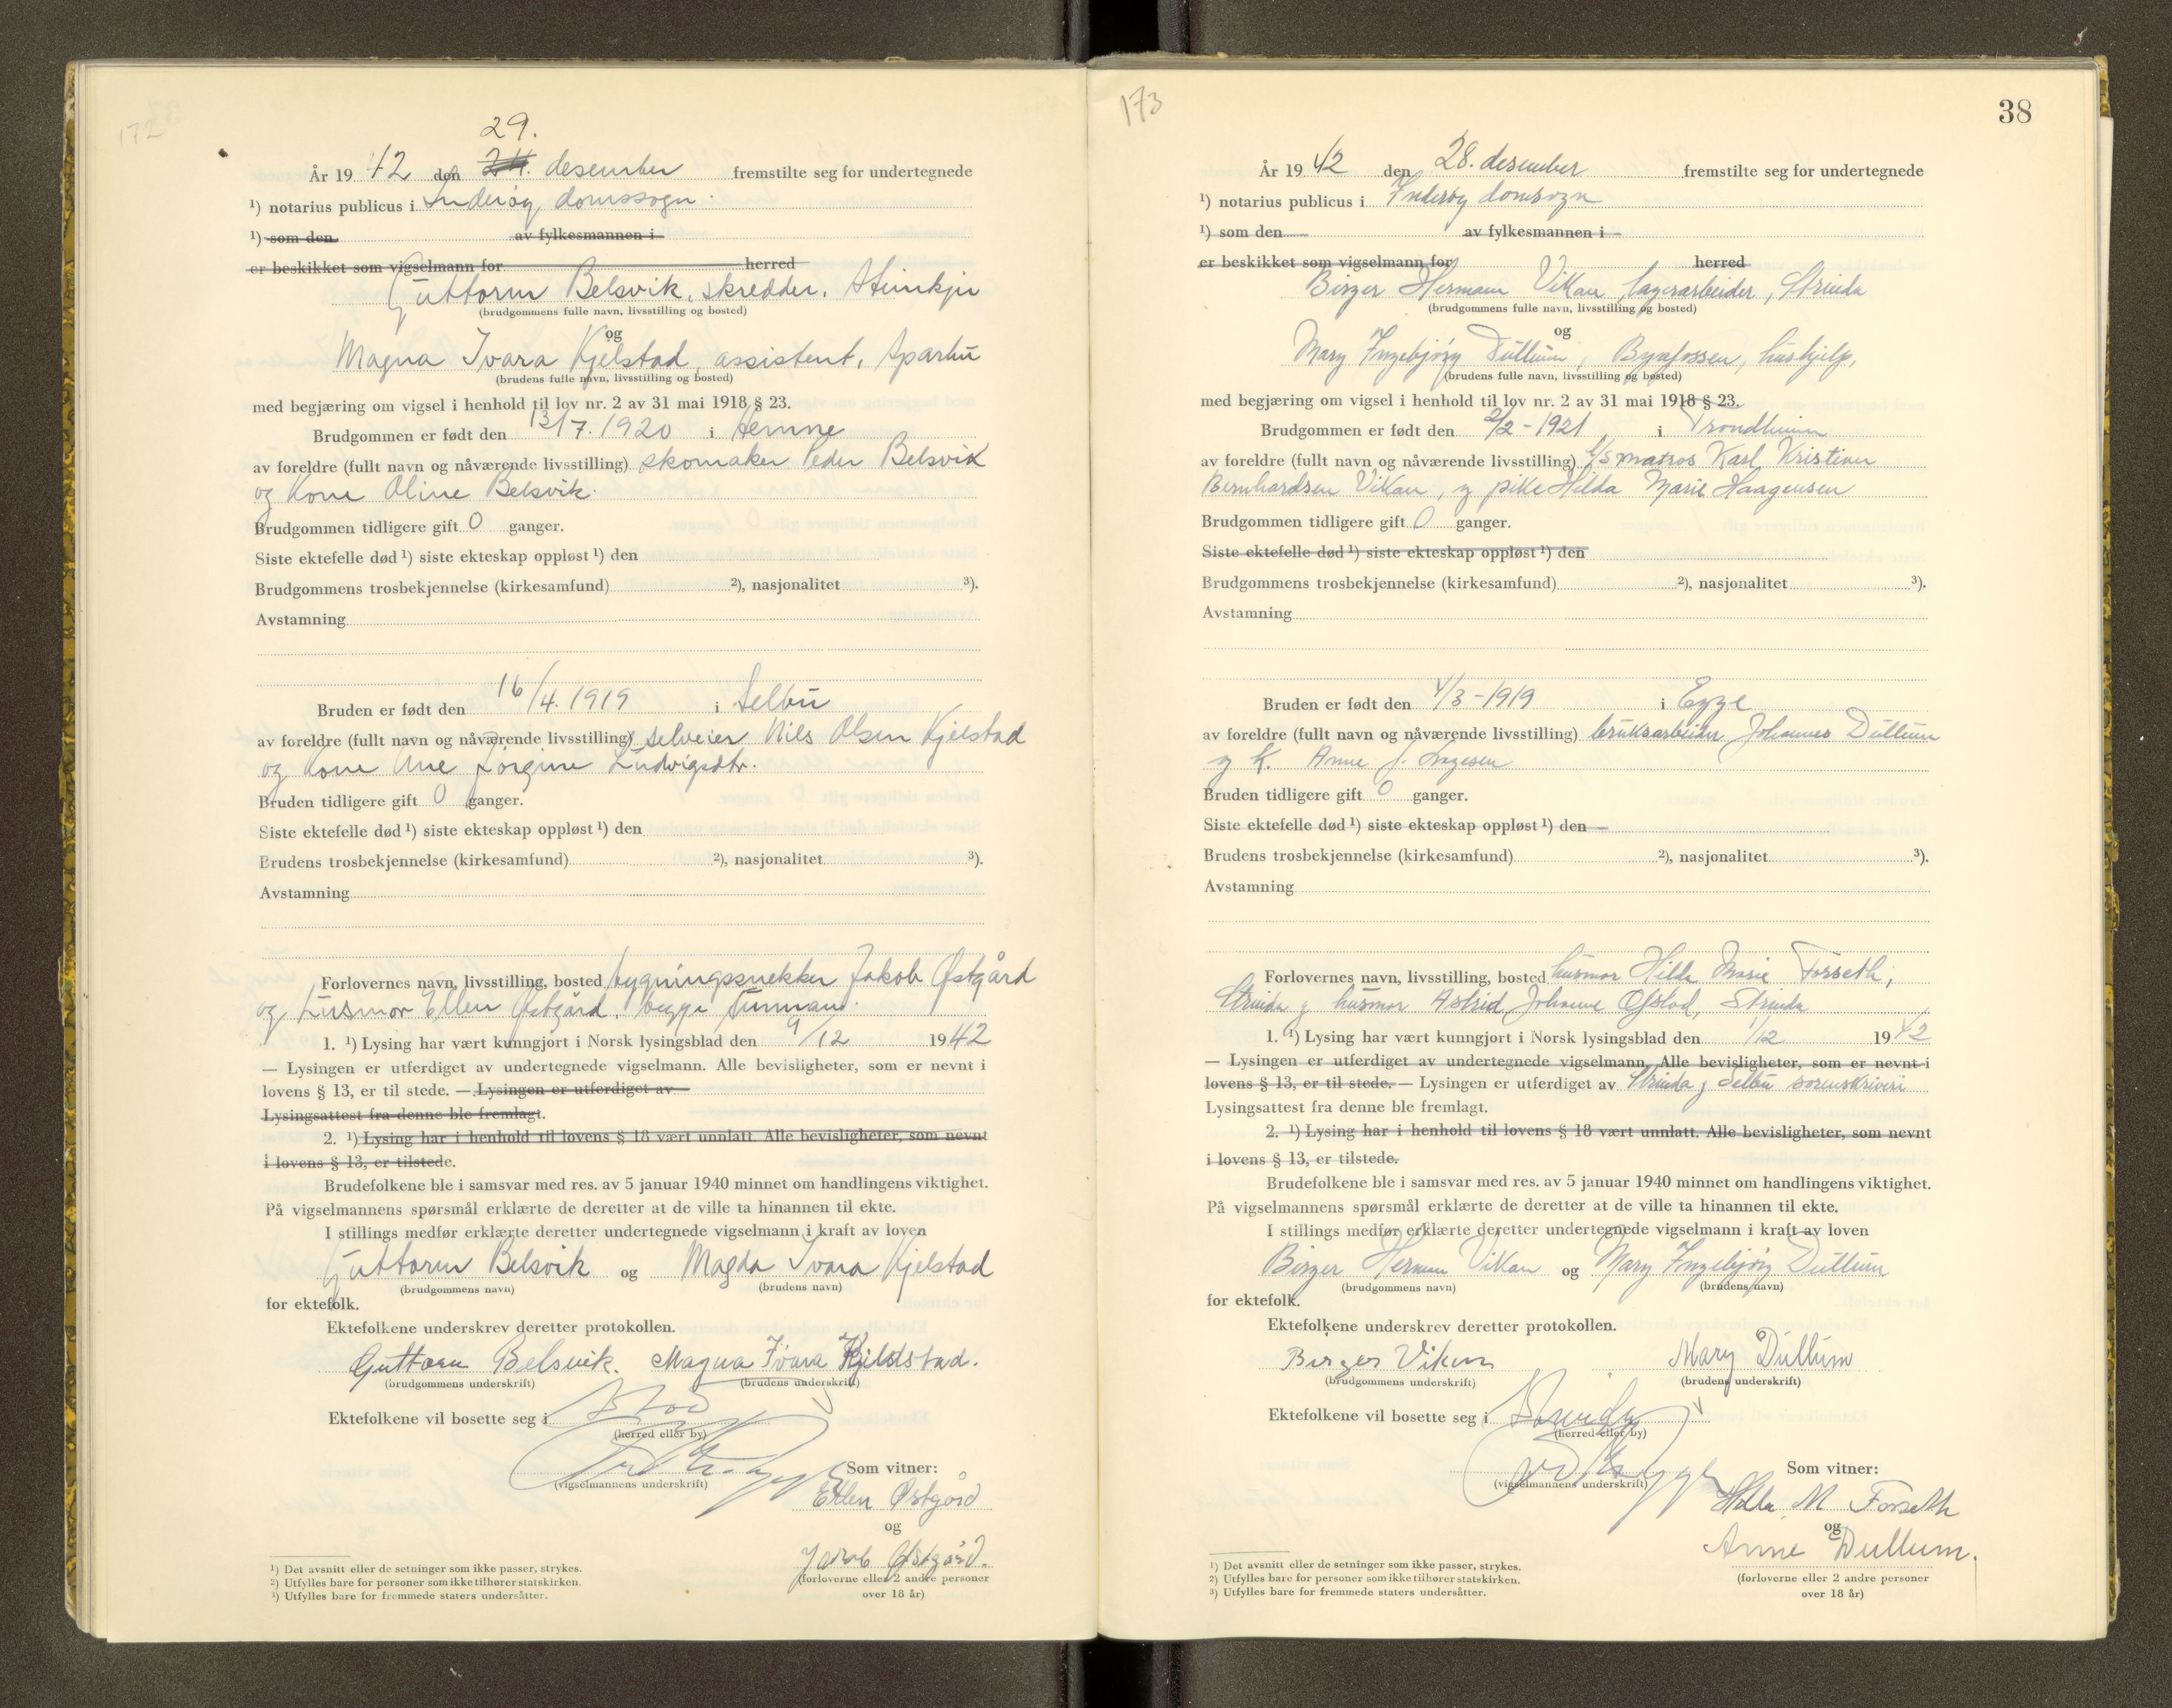 172
29.
År 19 42 den 24. desember fremstilte seg for undertegnede
¹) notarius publicus i Inderøy domssogn.
¹) som den av fylkesmannen i
er beskikket som vigselmann for herred
Guttorm Belsvik, skredder, Steinkjer
(brudgommens fulle navn, livsstilling og bosted)
og
Magna Ivara Kjelstad, assistent, Sparbu
(brudens fulle navn, livsstilling og bosted)
med begjæring om vigsel i henhold til lov nr. 2 av 31 mai 1918 § 23.
Brudgommen er født den 13/7. 1920 i Hemne
av foreldre (fullt navn og nåværende livsstilling) skomaker Peder Belsvik
og kone Oline Belsvik.
Brudgommen tidligere gift 0 ganger.
Siste ektefelle død ¹) siste ekteskap oppløst ¹) den
Brudgommens trosbekjennelse (kirkesamfund) ²), nasjonalitet ³).
Avstamning
Bruden er født den 16/4. 1919 i Selbu
av foreldre (fullt navn og nåværende livsstilling) selveier Nils Olsen Kjelstad
og kone Ane Jørgine Ludvigsdtr.
Bruden tidligere gift 0 ganger.
Siste ektefelle død ¹) siste ekteskap oppløst ¹) den
Brudens trosbekjennelse (kirkesamfund) ²), nasjonalitet ³).
Avstamning
Forlovernes navn, livsstilling, bosted bygningssnekker Jakob Østgård
og husmor Ellen Østgård, begge
1. ¹) Lysing har vært kunngjort i Norsk lysingsblad den 9/12 1942
— Lysingen er utferdiget av undertegnede vigselmann. Alle bevisligheter, som er nevnt i
lovens § 13, er til stede. — Lysingen er utferdiget av
Lysingsattest fra denne ble fremlagt.
2. ¹) Lysing har i henhold til lovens § 18 vært unnlatt. Alle bevisligheter, som nevnt
i lovens § 13, er tilstede.
Brudefolkene ble i samsvar med res. av 5 januar 1940 minnet om handlingens viktighet.
På vigselmannens spørsmål erklærte de deretter at de ville ta hinannen til ekte.
I stillings medfør erklærte deretter undertegnede vigselmann i kraft av loven
Guttorm Belsvik og Magda Ivara Kjelstad
(brudgommens navn) (brudens navn)
for ektefolk.
Ektefolkene underskrev deretter protokollen.
Guttorm Belsvik. Magna Ivara Kjeldstad.
(brudgommens underskrift) (brudens underskrift)
Ektefolkene vil bosette seg i Stod
(herred eller by)
(vigselmannens underskrift)
Som vitner:
Ellen Østgård
og
Jakob Østgård.
(forloverne eller 2 andre personer
over 18 år)
¹) Det avsnitt eller de setninger som ikke passer, strykes.
²) Utfylles bare for personer som ikke tilhører statskirken.
³) Utfylles bare for fremmede staters undersåtter.
173
38
År 19 42 den 28. desember fremstilte seg for undertegnede
¹) notarius publicus i Inderøy domsogn
¹) som den av fylkesmannen i
er beskikket som vigselmann for herred
Birger Herman Vikan, lagerarbeider, Strinda
(brudgommens fulle navn, livsstilling og bosted)
og
Mary Ingebjørg Dullum, Byafossen, hushjelp,
(brudens fulle navn, livsstilling og bosted)
med begjæring om vigsel i henhold til lov nr. 2 av 31 mai 1918 § 23.
Brudgommen er født den 2/2 - 1921 i Trondheim
av foreldre (fullt navn og nåværende livsstilling) matros Karl Kristian
Bernhardsen Vikan, og pike Hilda Marie Haagensen
Brudgommen tidligere gift 0 ganger.
Siste ektefelle død ¹) siste ekteskap oppløst ¹) den
Brudgommens trosbekjennelse (kirkesamfund) ²), nasjonalitet ³).
Avstamning
Bruden er født den 4/3 - 1919 i Egge
av foreldre (fullt navn og nåværende livsstilling) bruksarbeider Johannes Dullum
og k. Anne J. Ingesen
Bruden tidligere gift 0 ganger.
Siste ektefelle død ¹) siste ekteskap oppløst ¹) den
Brudens trosbekjennelse (kirkesamfund) ²), nasjonalitet ³).
Avstamning
Forlovernes navn, livsstilling, bosted husmor Hilda Marie Forseth,
Strinda og husmor Astrid Johanne Ofstad, Strinda
1. ¹) Lysing har vært kunngjort i Norsk lysingsblad den 1/12 1942
— Lysingen er utferdiget av undertegnede vigselmann. Alle bevisligheter, som er nevnt i
lovens § 13, er til stede. — Lysingen er utferdiget av Strinda og Selbu sorenskriveri
Lysingsattest fra denne ble fremlagt.
2. ¹) Lysing har i henhold til lovens § 18 vært unnlatt. Alle bevisligheter, som nevnt
i lovens § 13, er tilstede.
Brudefolkene ble i samsvar med res. av 5 januar 1940 minnet om handlingens viktighet.
På vigselmannens spørsmål erklærte de deretter at de ville ta hinannen til ekte.
I stillings medfør erklærte deretter undertegnede vigselmann i kraft av loven
Birger Herman Vikan og Mary Ingebjørg Dullum
(brudgommens navn) (brudens navn)
for ektefolk.
Ektefolkene underskrev deretter protokollen.
Birger Vikan Mary Dullum
(brudgommens underskrift) (brudens underskrift)
Ektefolkene vil bosette seg i Strinda
(herred eller by)
(vigselmannens underskrift)
Som vitner:
Hilda M Forseth
og
Anne Dullum.
(forloverne eller 2 andre personer
over 18 år)
¹) Det avsnitt eller de setninger som ikke passer, strykes.
²) Utfylles bare for personer som ikke tilhører statskirken.
³) Utfylles bare for fremmede staters undersåtter.